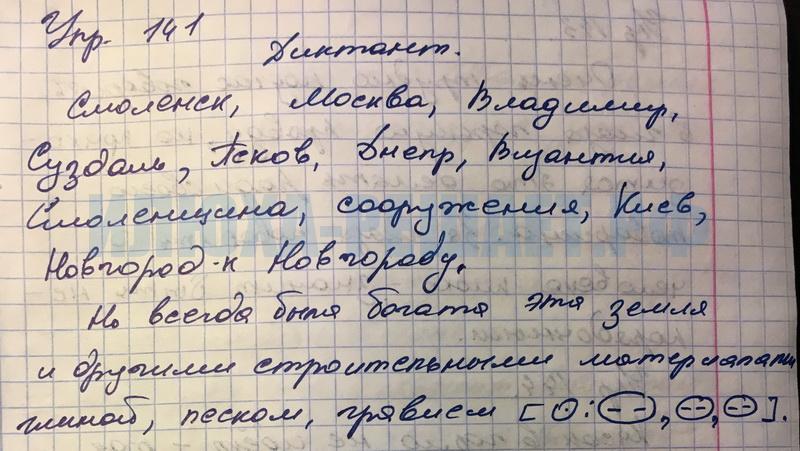 Упр. 141
Диктант.
Смоленск, Москва, Владимир,
Суздаль, Псков, Днепр, Византия,
Смоленщина, сооружения, Киев,
Новгород-к Новгороду.
Но всегда была богата эта земля
и другими строительными материалами
глиной, песком, гравием [⊙: (– –), (– –), (– –)].